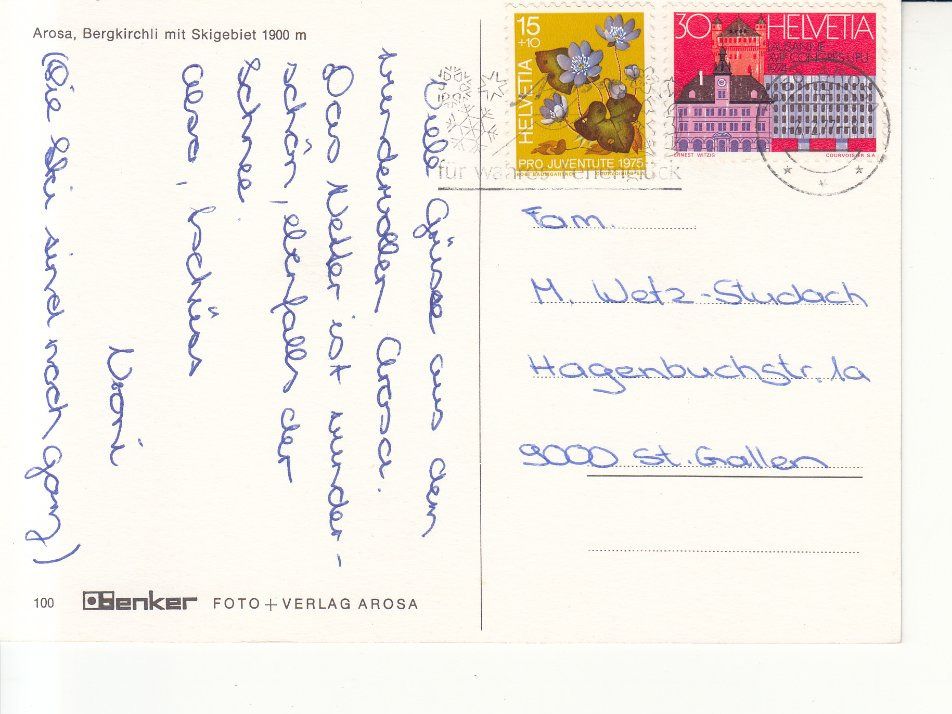 Arosa, Bergkirchli mit Skigebiet 1900 m
Viele Grüsse aus dem
wundervollen Arosa.
Das Wetter ist wunder-
schön, ebenfalls der
Schnee.
Also, tschüss
(Die Ski sind noch ganz)
100
Benker FOTO + VERLAG AROSA
15
+10
HELVETIA
PRO JUVENTUTE 1975
30 HELVETIA
LAUSANNE
XVII CONGRES UPU
1974
ERNEST WITZIG
COURVOISIER S.A.
für
Fam.
M. Wetz-Studach
Hagenbuchstr. 1a
9000 St. Gallen